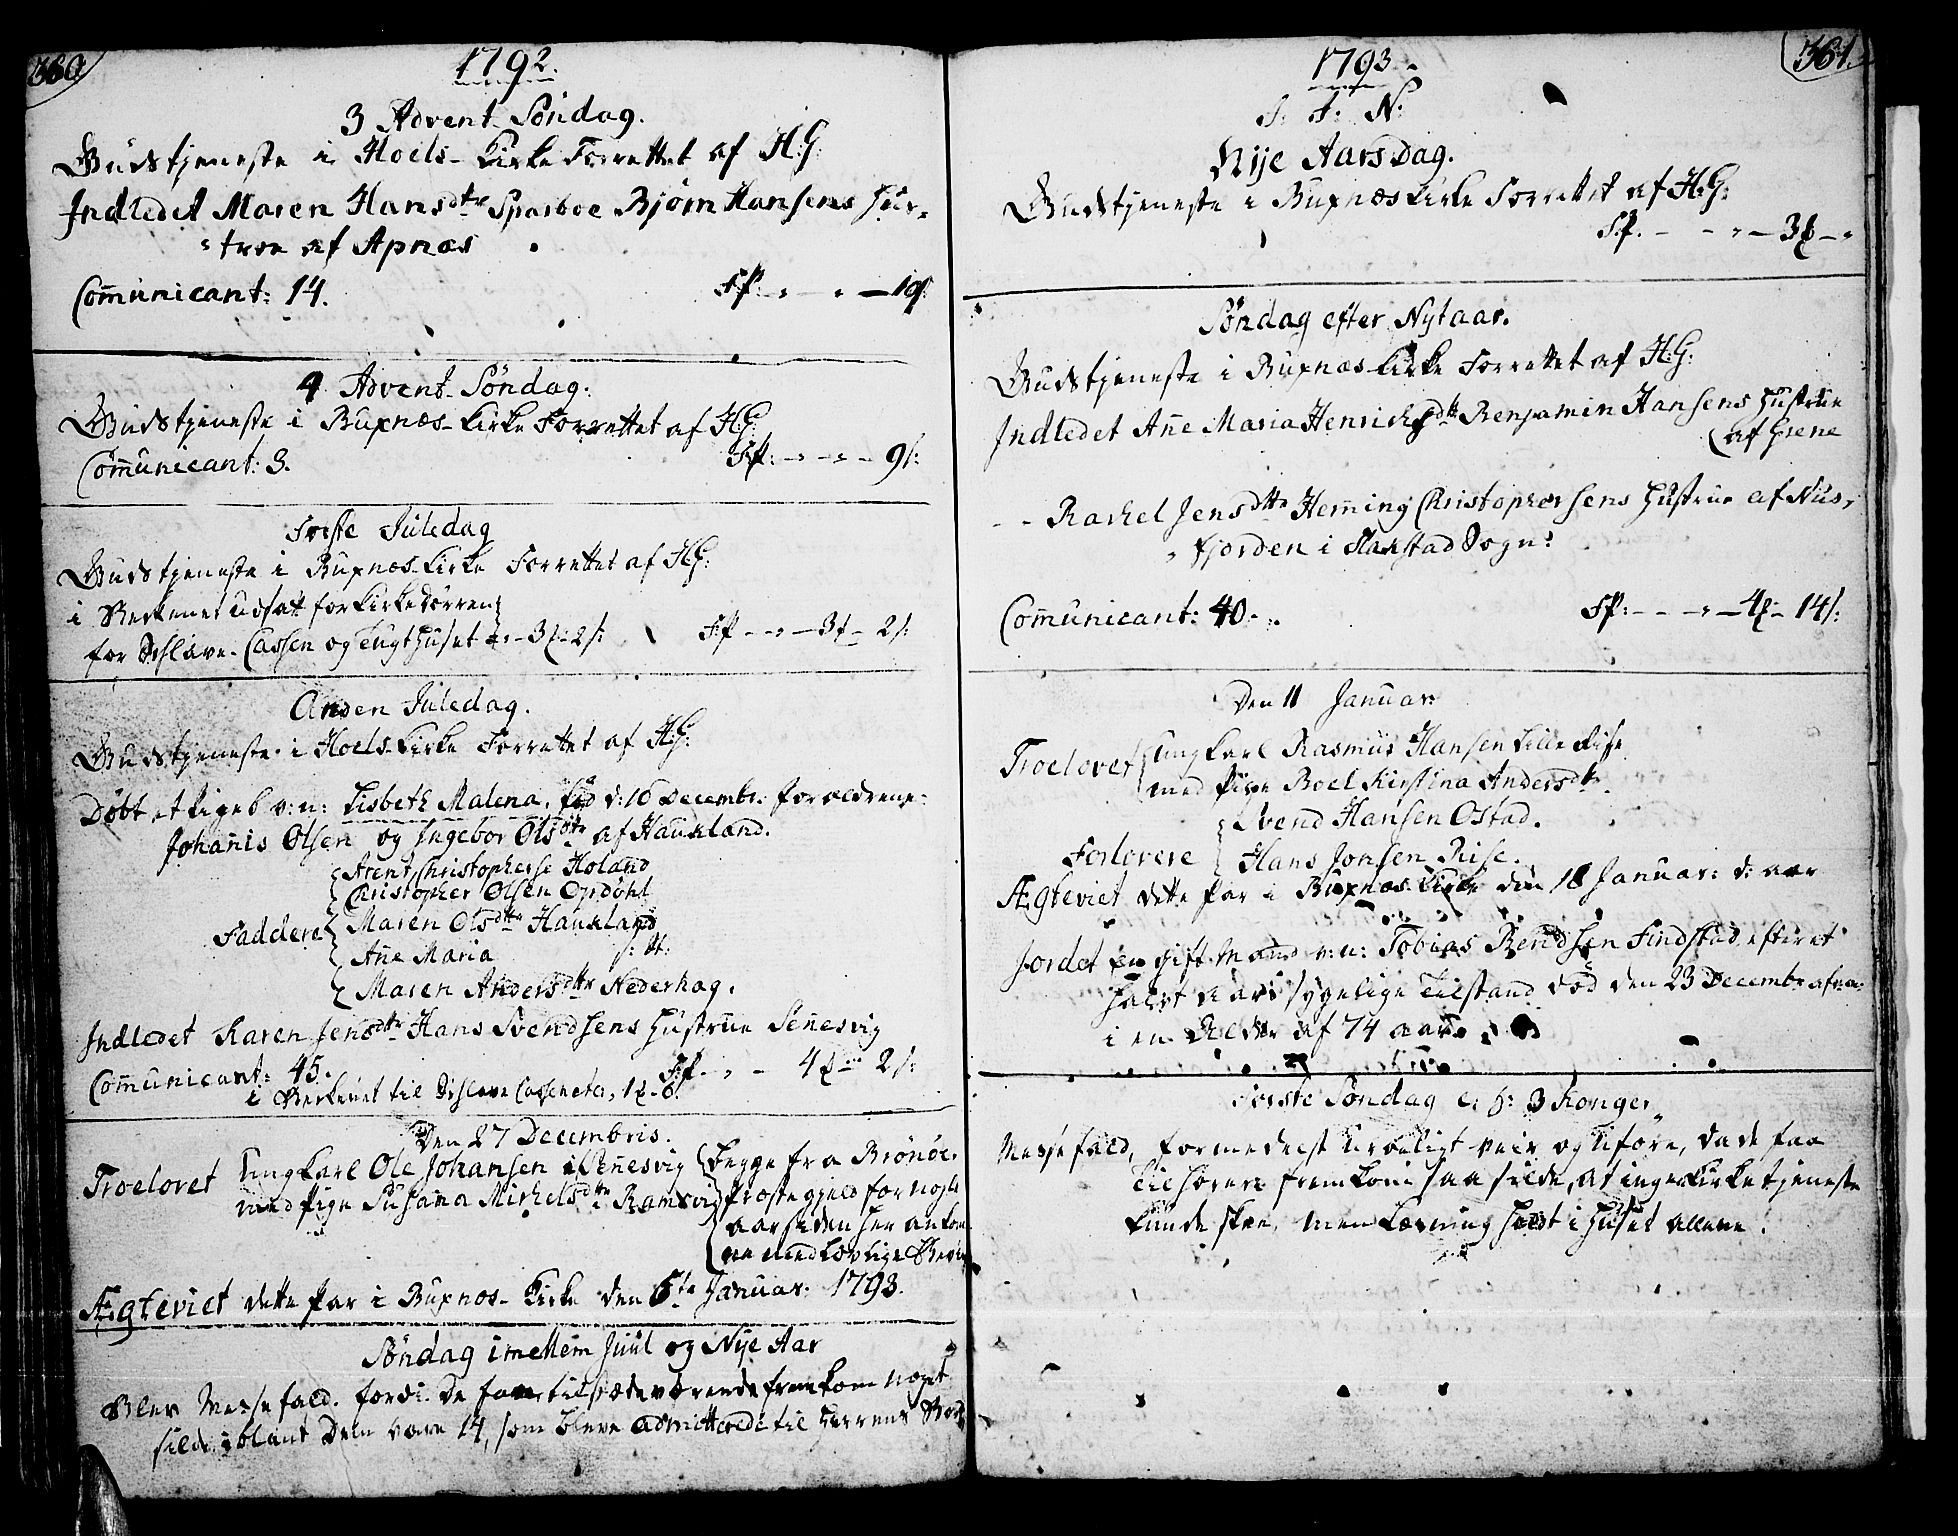 360
1792.
3 Advent Søndag.
Gudstjeneste i Hoels-Kirke Forrettet af H:G:
Indledet Maren Hansdtr Sparboe Bjørn Hansens Hus-
true af Apnæs
Com̄unicant: 14.
4 Advent Søndag.
Gudstjeneste i Buxnæs-Kirke Forrettet af H:G:
Com̄unicant: 3. Fp: - - - 9 s:
Første Juledag
Gudstjeneste i Buxnæs-Kirke Forrettet af H:G:
i Bekkenet udsatt for Kirkedørren
for Schlave-Cassen og Tugthuset - 3 - 2 s:
Anden Juledag.
Gudstjeneste i Hoels-Kirke Forrettet af H:G:
Døbt et Pigeb v: n: Lisbeth Malena, fød d: 10 Decembr: Forældrene
Johan̄is Olsen og Ingebor Olsdtr af Haukland.
Arent Christopherse Holand
Christopher Olsen Opdøhl
Faddere Maren Olsdtr Haukland
An̄e Maria
Maren Andersdtr Nederhag.
Indledet Karen Jensdtr Hans Svendsens Hustrue Sen̄esvig
Com̄unicant: 45.
i Bekkenet til Schlave Cassen etc,
Den 27 Decembris.
Troelovet Ungkarl Ole Johansen i Sen̄esvig
med Pige Susan̄a Michelsdtr i Ramsvi
begge fra Brönöe
Prostegjeld for nogle
aar siden her ankom
ne med lovlige
Ægteviet dette Par i Buxnæs-Kirke den 6te Januar: 1793.
Søndag imellem Juul og Nye Aar
Blev Messefald, fordi De faa tilstædeværende fremkom noget
silde, iblant Dem vare 14, som bleve admitterede til Herrens Bord
361.
1793.
I: J: N:
Nye Aarsdag.
Gudstjeneste i Buxnæs Kirke Forrettet af H:G:
Søndag efter Nytaar.
Gudstjeneste i Buxnæs-Kirke Forrettet af H:G:
Indledet An̄e Maria Henrichsdtr Benjamin Hansens Hustrue
af Grene
- - Rachel Jensdtr Hem̄ing Christophersens Hustrue af Nus,
fjorden i Flakstad Sogn:
Com̄unicant: 40.
Den 11 Januar:
Troelovet Ungkarl Rasmus Hansen Lille Rise
med Pige Boel Kirstina Andersdtr.
Svend Hansen Ostad.
Forlovere Hans Jonsen Rise.
Ægteviet dette Par i Buxnæs-Kirke den 18 Januar: d: aar
Jordet en gift Mand v: n: Tobias Bendsen Findstad efter et
halvt aars sygelige Tilstand død den 23 Decembr
i en Alder af 74 aar
Første Søndag e: h: 3 Konger
Messefald, formedelst Uroeligt veir og Uføre, da de faa
Tilhørere fremkom saa silde, at ingen Kirketjeneste
kunde skee, men Læsning holdt i Huset allene.